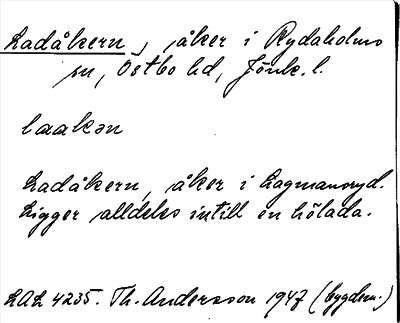 Ladåkern, åker i Rydaholms
sn, Östbo hd, Jönk. l.
laakən
Ladåkern, åker i Lagmansryd.
Ligger alldeles intill en hölada.
LAL 4235. Th. Andersson 1947 (bygdem.)